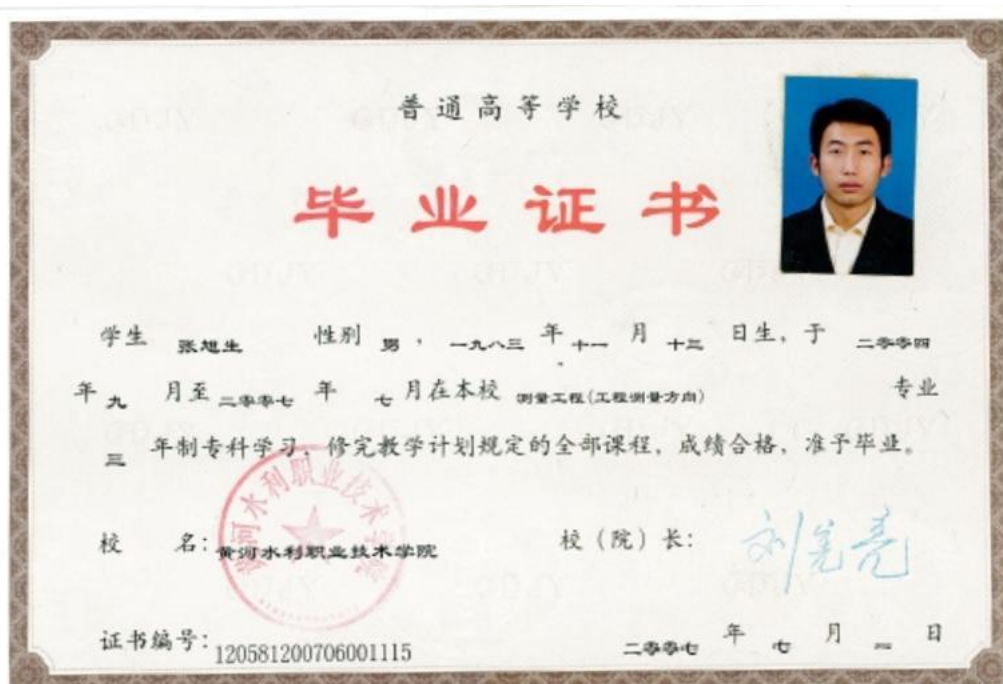 普通高等学校
毕业证书
学生 张旭生 性别 男，一九八三 年 十一 月 十三 日生，于 二零零四
年 九 月至 二零零七 年 七 月在本校 测量工程(工程测量方向) 专业
三 年制专科学习，修完教学计划规定的全部课程，成绩合格，准予毕业。
黄河水利职业技术学院
校 名：黄河水利职业技术学院 校（院）长：
证书编号：120581200706001115 二零零七 年 七 月 日